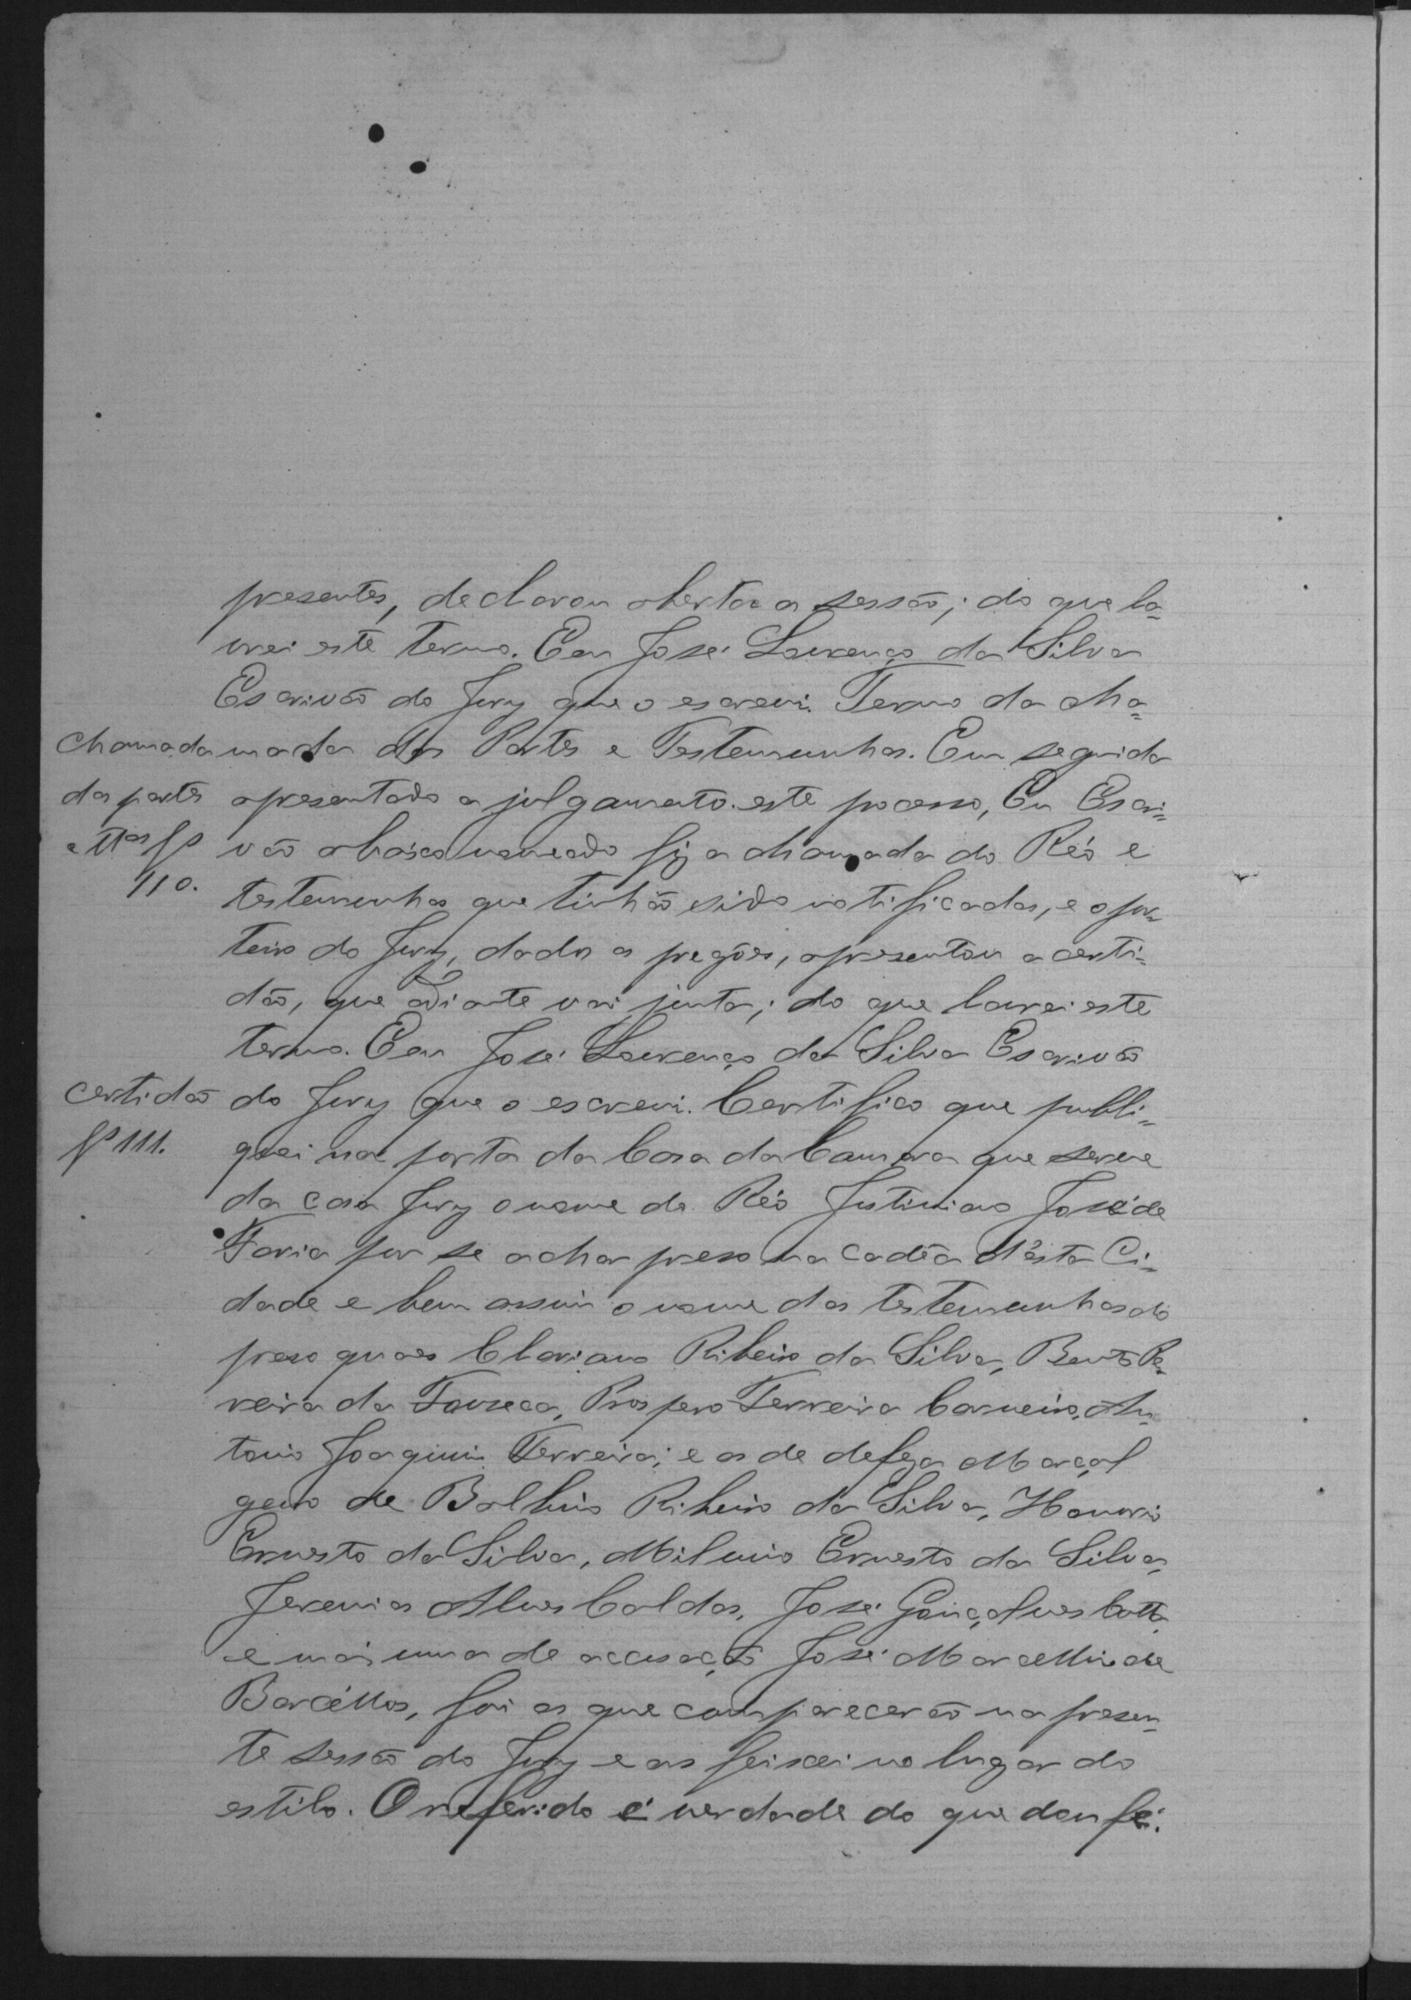 presentes, declarou aberta a sessão; do que la-
vrei este termo. Eu José Lourenço da Silva
Escrivão do Jury que o escrevi. Termo da cha-
Chamada
mada das Partes e Testemunhas. Em seguida
das partes
apresentado a julgamento este pocesso, Eu Escri-
e ttas fs
vão abáixo nomeado fiz a chamada do Réo e
110.
testemunhas que tinhão sido notificadas, e o por-
teiro do Jury, dados os pregões, apresentou a certi-
dão, que adiante vai junta; do que lavrei este
termo. Eu José Lourenço da Silva Escrivão
certidão
do Jury que o escrevi. Certifico que publi-
fs 111.
quei na porta da Casa da Camara que serve
da casa Jury o nome do Réo Justiniano José de
Faria por se achar preso na cadêa d'esta Ci-
dade e bem assim o nome das testemunhas do
preso quaes Clariano Ribeiro da Silva, Bento Pe-
reira da Fonseca, Prospero Ferreira Carneiro, An-
tonio Joaquim Ferreira; e as de defeza Marçal
genro de Balbino Ribeiro da Silva, Honorio
Ernesto da Silva, Milmio Ernesto da Silva,
Jeremias Alves Caldas, José Gonçalves Cotta
e mais uma de accusação José Marcellino de
Barcéllos, foi as que comparecerão na presen-
te sessão do Jury e as feixei no lugar do
estilo. O referido é verdade do que dou fé.